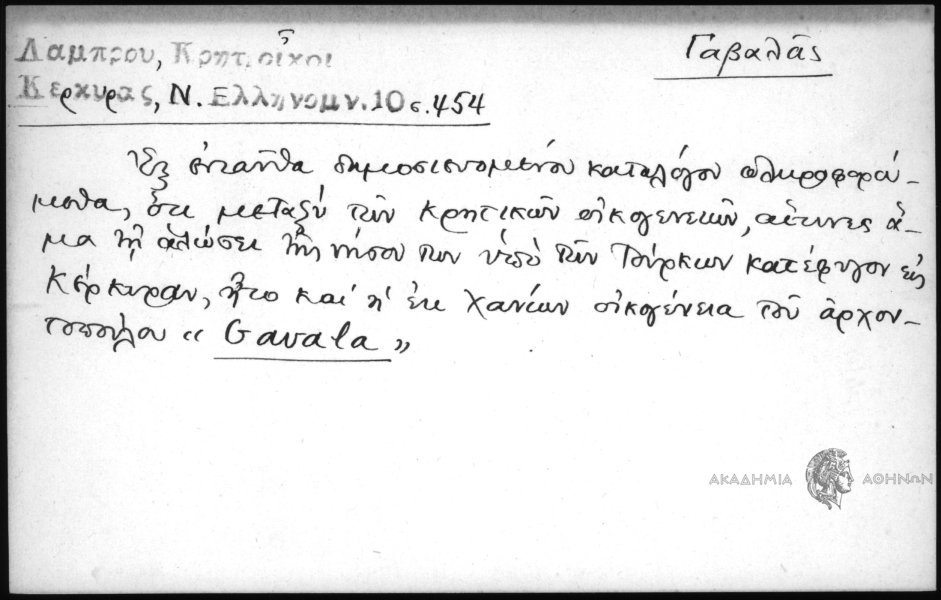 Λαμπρου, Κρητ. οἶκοι
Γαβαλᾶς
Κερκυρας, Ν. Ελληνομν. 10 σ. 454
Ἐξ ἐνταῦθα δημοσιευομένου καταλόγου πληροφορού-
μεθα, ὅτι μεταξὺ τῶν κρητικῶν οἰκογενειῶν, αἵτινες ἅ-
μα τῇ ἁλώσει τῆς νήσου των ὑπὸ τῶν Τούρκων κατέφυγον εἰς
Κέρκυραν, ἦτο καὶ ἡ ἐκ Χανίων οἰκογένεια τοῦ ἀρχον-
τοπούλου « Gavala »
ΑΚΑΔΗΜΙΑ ΑΘΗΝΩΝ